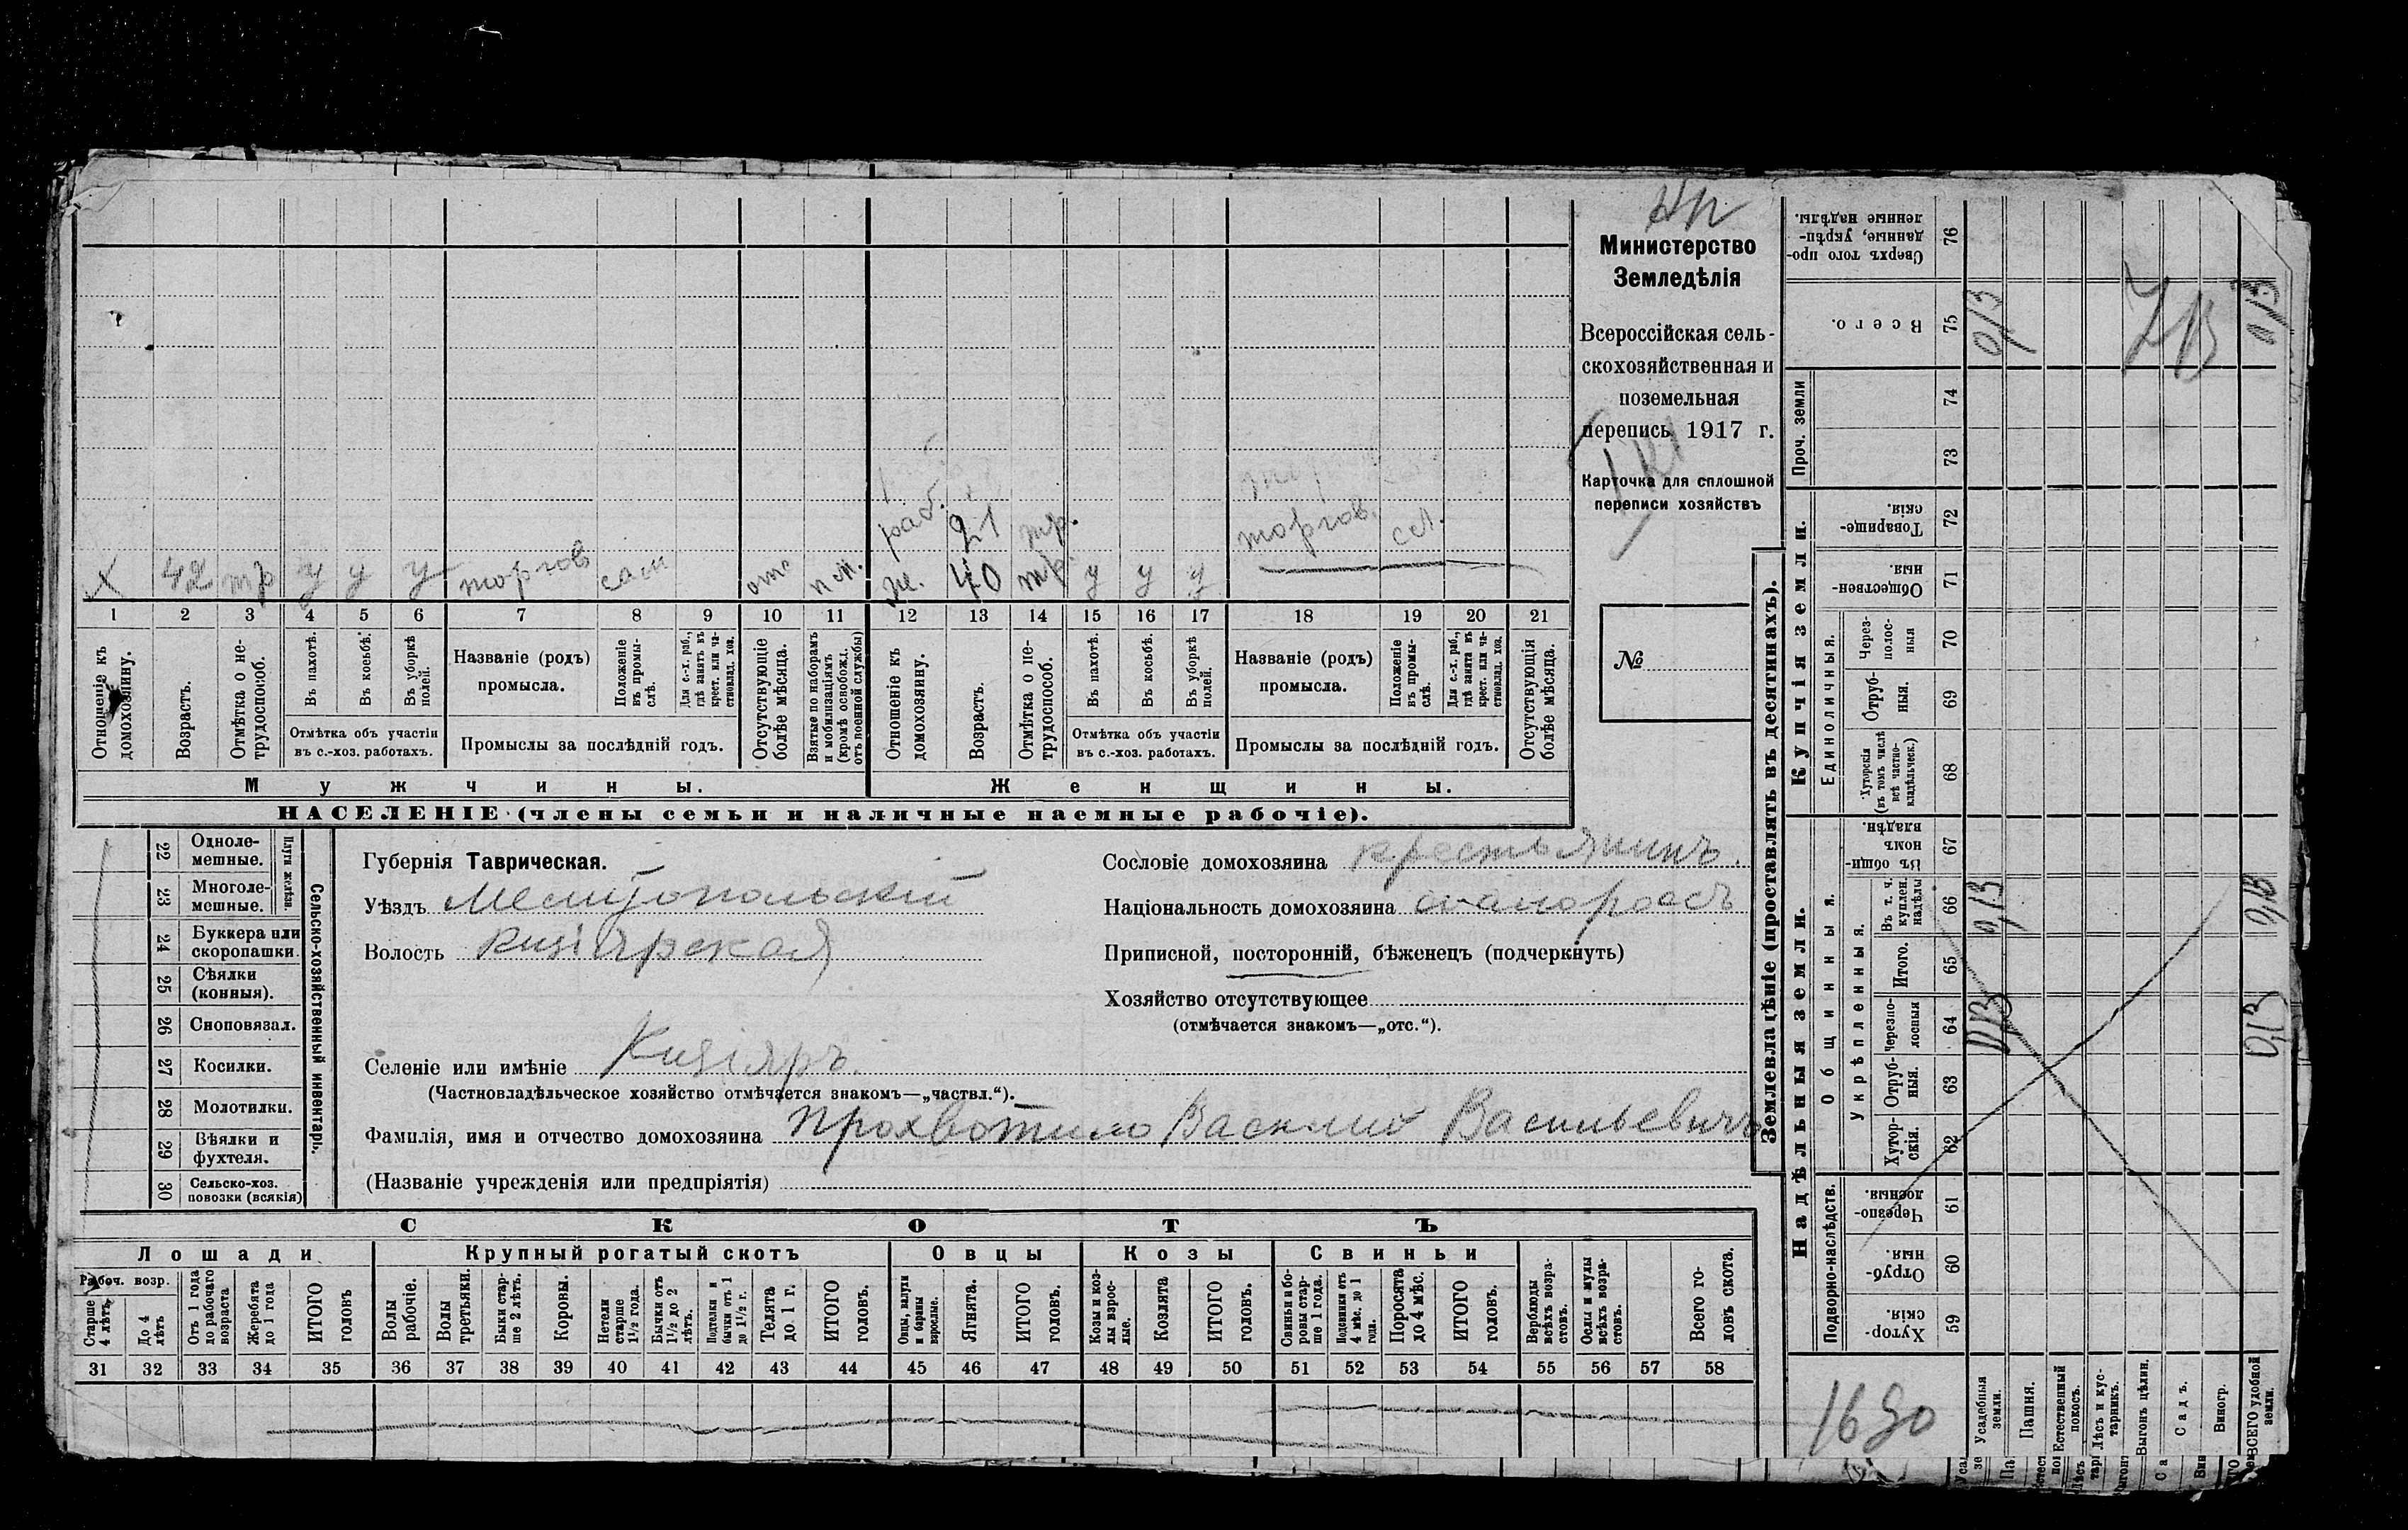 Министерство
Земледѣлія
Всероссійская сель-
скохозяйственная и
поземельная
перепись 1917 г.
Карточка для сплошной
переписи хозяйствъ
№
раб. 21 тр. торгов. сл.
х 42 тр у у у торгов сам отс п м. ж. 40 тр у у у
1 2 3 4 5 6 7 8 9 10 11 12 13 14 15 16 17 18 19 20 21
Отношеніе къ домохозяину.
Возрастъ.
Отмѣтка о не-трудоспособ.
Въ пахотѣ.
Въ косьбѣ.
Въ уборкѣ полей.
Отмѣтка объ участіи
въ с.-хоз. работахъ.
Названіе (родъ)
промысла.
Положеніе въ промы-слѣ.
Для с.-х. раб., гдѣ занятъ въ крест. или ча-стновлад. хоз.
Промыслы за послѣдній годъ.
Отсутствующіе болѣе мѣсяца.
Взятые по наборамъ и мобилизаціямъ (кромѣ освобожд. отъ военной службы)
Отношеніе къ домохозяину.
Возрастъ.
Отмѣтка о не-трудоспособ.
Въ пахотѣ.
Въ косьбѣ.
Въ уборкѣ полей.
Отмѣтка объ участіи
въ с.-хоз. работахъ.
Названіе (родъ)
промысла.
Положеніе въ промы-слѣ.
Для с.-х. раб., гдѣ занята въ крест. или ча-стновлад. хоз.
Промыслы за послѣдній годъ.
Отсутствующія болѣе мѣсяца.
Мужчины.
Женщины.
НАСЕЛЕНІЕ (члены семьи и наличные наемные рабочіе).
22 Одноле-мешные.
23 Многоле-мешные.
Плуги желѣзн.
24 Буккера или скоропашки.
25 Сѣялки (конныя).
26 Сноповязал.
27 Косилки.
28 Молотилки.
29 Вѣялки и фухтеля.
30 Сельско-хоз. повозки (всякія)
Сельско-хозяйственный инвентарь.
Губернія Таврическая.
Уѣздъ Мелитопольский
Волость Кизіярская
Селеніе или имѣніе Кизіяръ.
(Частновладѣльческое хозяйство отмѣчается знакомъ—„частвл.“).
Фамилія, имя и отчество домохозяина Прохватило Василий Васильевичъ
(Названіе учрежденія или предпріятія)
Сословіе домохозяина крестьянинъ.
Національность домохозяина
Приписной, посторонній, бѣженецъ (подчеркнуть)
Хозяйство отсутствующее
(отмѣчается знакомъ—„отс.“).
СКОТЪ
Лошади
Крупный рогатый скотъ
Овцы
Козы
Свиньи
Рабоч. возр.
Старше 4 лѣтъ.
До 4 лѣтъ
Отъ 1 года до рабочаго возраста
Жеребята до 1 года
ИТОГО головъ
Волы рабочіе.
Волы третьяки.
Быки стар-ше 2 лѣтъ.
Коровы.
Нетели старше 1½ года.
Бычки отъ 1½ до 2 лѣтъ.
Подтелки и бычки отъ 1 до 1½ г.
Телята до 1 г.
ИТОГО головъ.
Овцы, валухи и бараны взрослые.
Ягнята.
ИТОГО головъ.
Козы и коз-лы взрос-лые.
Козлята
ИТОГО головъ.
Свиньи и бо-ровы стар-ше 1 года.
Подсвинки отъ 4 мѣс. до 1 года.
Поросята до 4 мѣс.
ИТОГО головъ.
Верблюды всѣхъ возра-стовъ.
Ослы и мулы всѣхъ возра-стовъ.
Всего го-ловъ скота.
31 32 33 34 35 36 37 38 39 40 41 42 43 44 45 46 47 48 49 50 51 52 53 54 55 56 57 58
Землевладѣніе (проставлять въ десятинахъ).
Надѣльныя земли.
Купчія земли.
Проч. земли
Подворно-наслѣдств.
Общинныя.
Укрѣпленныя.
Единоличныя.
Хутор-скія. 59
Отруб-ныя. 60
Черезпо-лосныя. 61
Хутор-скія. 62
Отруб-ныя. 63
Черезпо-лосныя 64 0,13 0,13
Итого. 65
Въ т. ч. куплен. надѣлы 66 0,13 0,13
Въ общи-номъ владѣн. 67
Хуторскія (въ томъ числѣ всѣ частно-владѣльческ.) 68
Отруб-ныя. 69
Через-полос-ныя 70
Обществен-ныя. 71
Товарище-скія. 72
73
74
Всего. 75 0,13 0,13
Сверхъ того про-данные, укрѣп-ленные надѣлы. 76
1690
Усадебныя земли.
Пашня.
Естественный покосъ.
Лѣсъ и кус-тарникъ.
Выгонъ цѣлин.
Садъ.
Виногр.
ВСЕГО удобной земли.